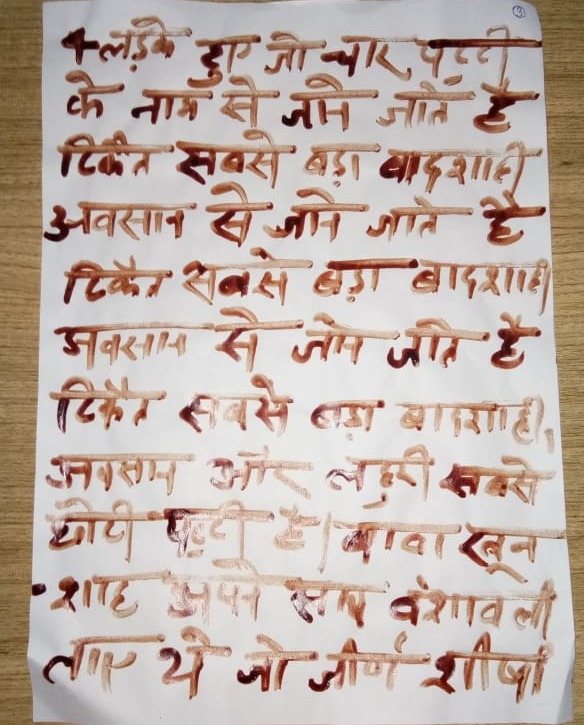 ③
4 लड़के हुए जो चार पट्टी
के नाम से जाने जाते है
टिकैत सबसे बड़ा बादशाही
अवसान से जाने जाते है
टिकैत सबसे बड़ा बादशाही
अवसान से जाने जाते है
टिकैत सबसे बड़ा बादशाही,
अवसान और लहुरी सबसे
छोटी पट्टी है। बाबा खून
शाह अपने साथ वंशावली
लाए थे जो जीर्ण शीर्षा